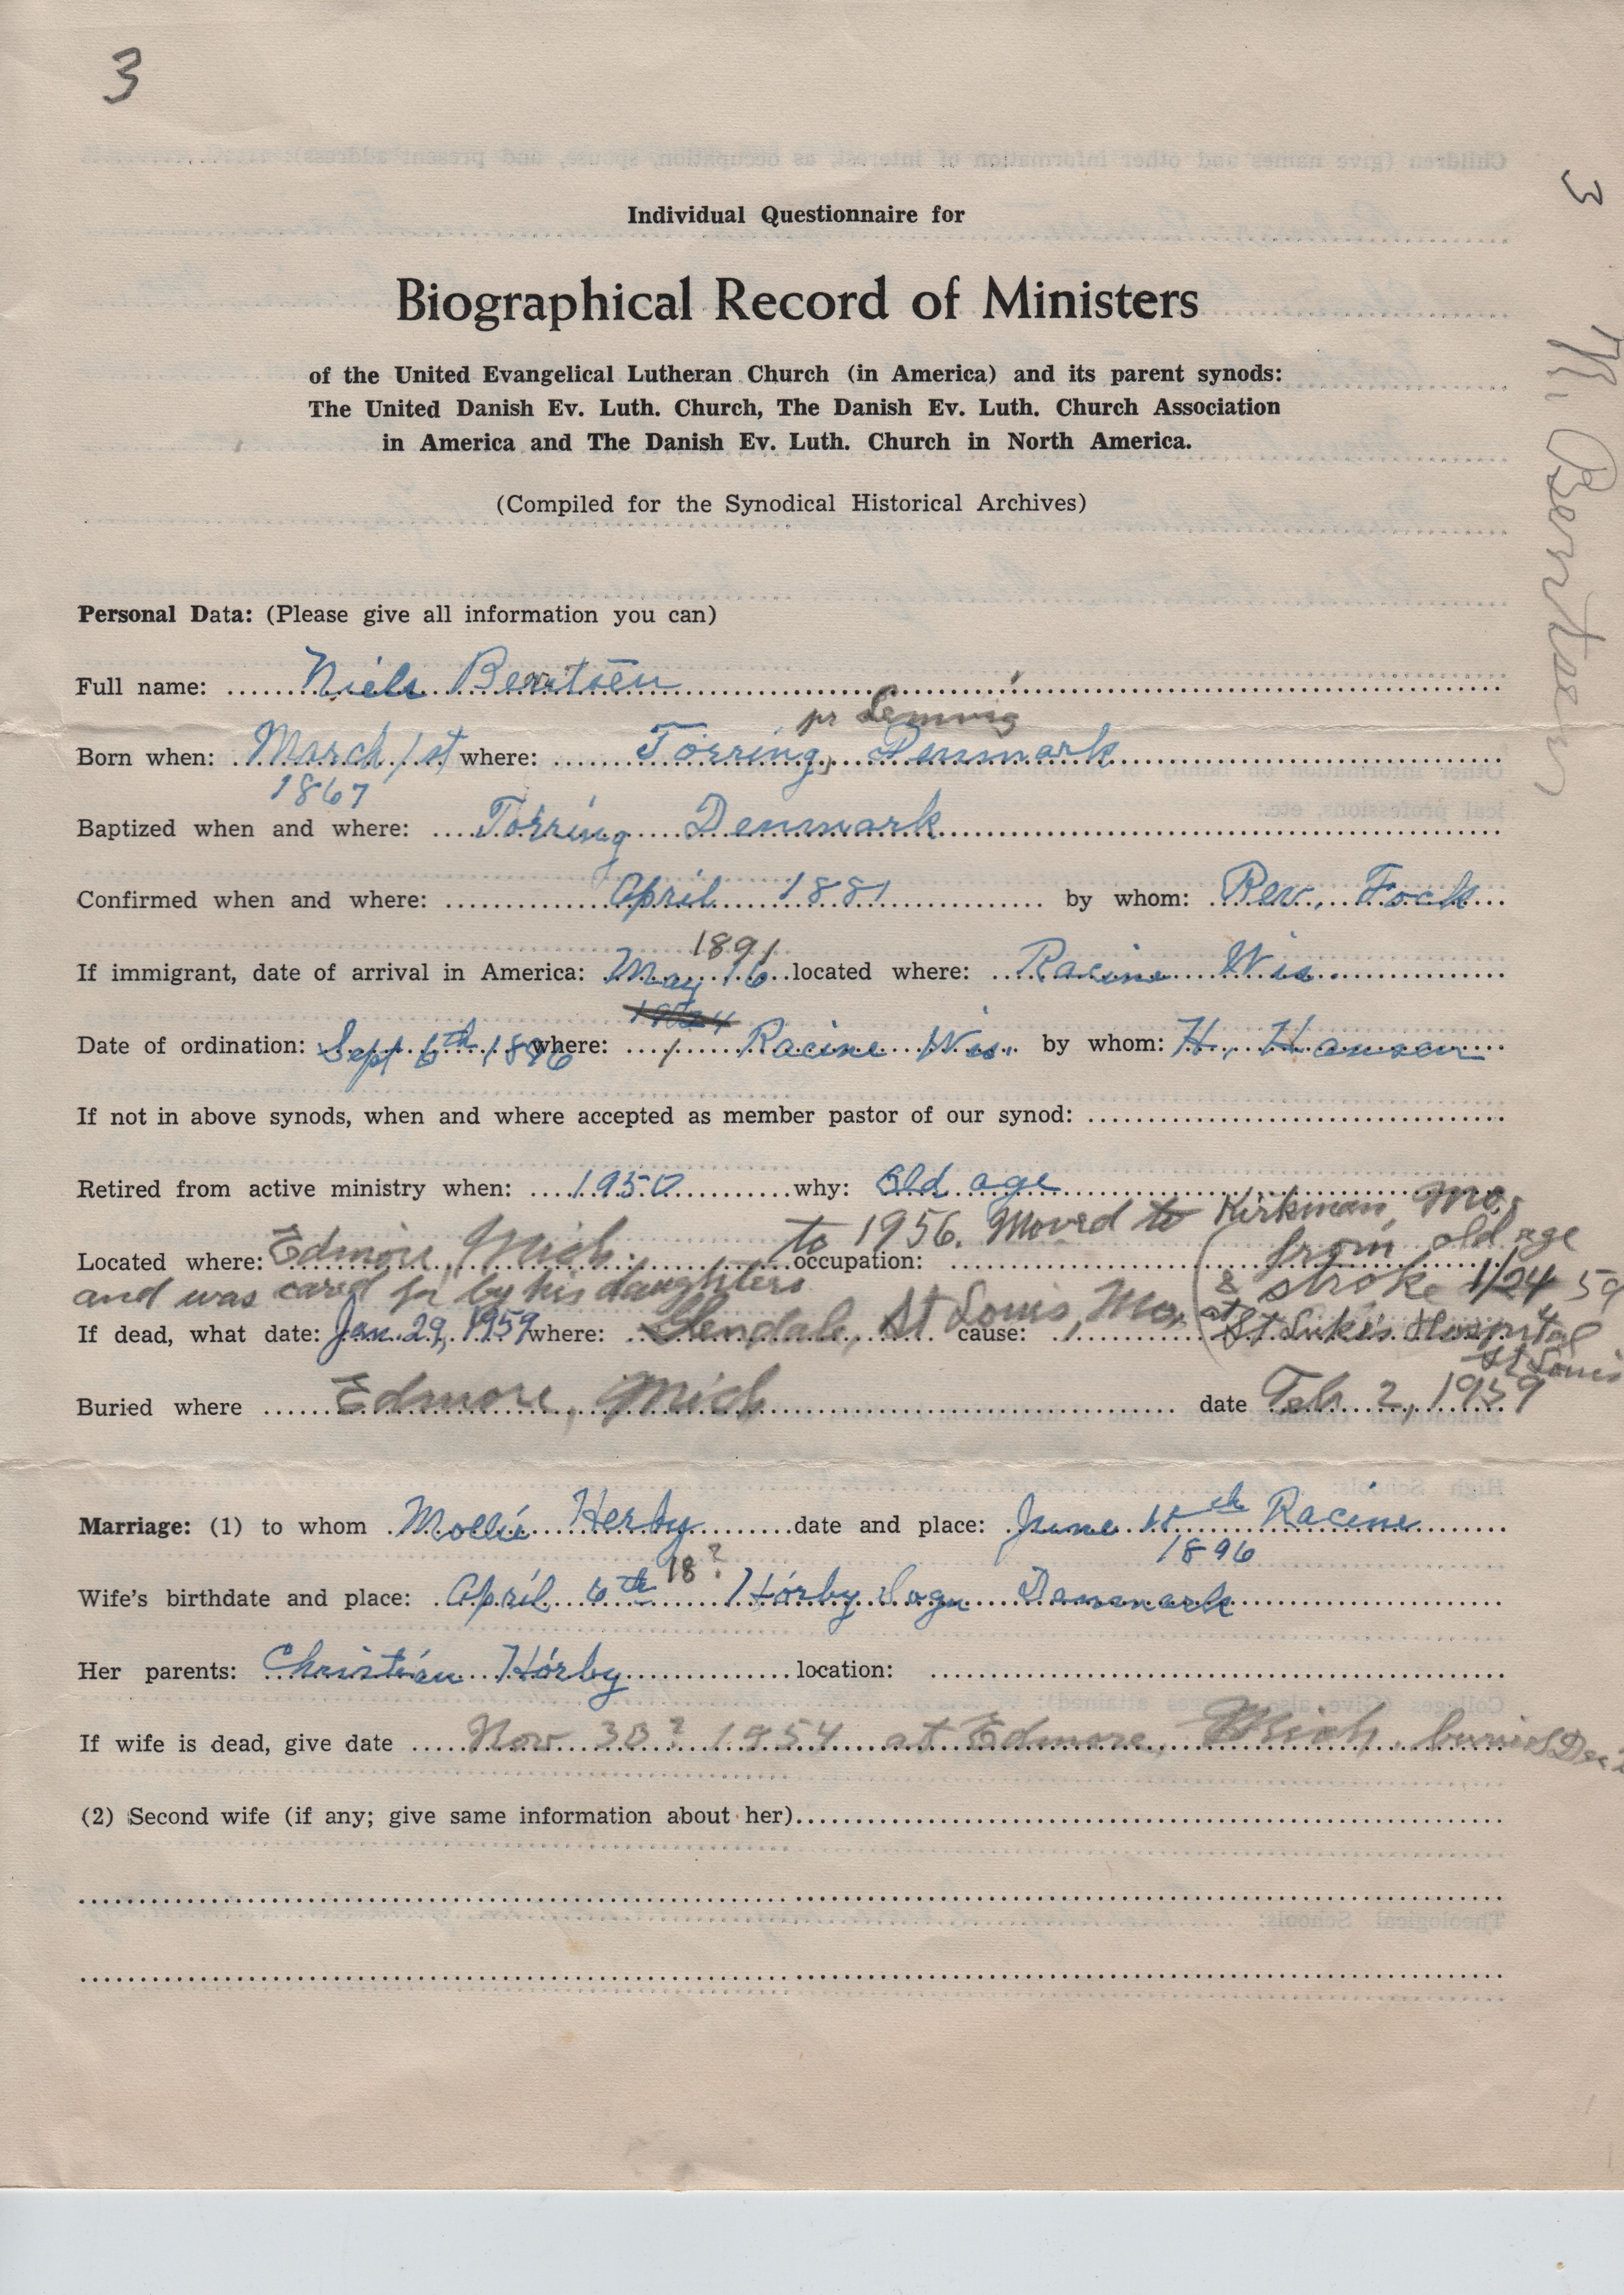 3
3
N. Berntsen
Individual Questionnaire for
Biographical Record of Ministers
of the United Evangelical Lutheran Church (in America) and its parent synods:
The United Danish Ev. Luth. Church, The Danish Ev. Luth. Church Association
in America and The Danish Ev. Luth. Church in North America.
(Compiled for the Synodical Historical Archives)
Personal Data: (Please give all information you can)
Full name: Niels Berntsen
pr Lemvig
Born when: March 1st where: Törring, Denmark
1867
Baptized when and where: Törring Denmark
Confirmed when and where: April 1881 by whom: Rev. Fock
1891
If immigrant, date of arrival in America: May 16 located where: Racine Wis.
Date of ordination: Sept 6th 1896 where: Racine Wis. by whom: H. Hansen
If not in above synods, when and where accepted as member pastor of our synod:
Retired from active ministry when: 1950 why: Old age
to 1956. Moved to Kirkman, Mo.
Located where: Edmore, Mich. occupation:
and was cared for by his daughters
from old age
& stroke 1/24 59
If dead, what date: Jan. 29, 1959 where: Glendale, St Louis, Mo, cause: at St Luke's Hospital
St Louis
Buried where Edmore, Mich date Feb 2, 1959
Marriage: (1) to whom Mollie Herby date and place: June Racine
1896
18?
Wife's birthdate and place: April 6th Hörby Sogn Danmark
Her parents: Christian Hörby location:
If wife is dead, give date Nov 30? 1954 at Edmore, Mich, buried Dec 2
(2) Second wife (if any; give same information about her)